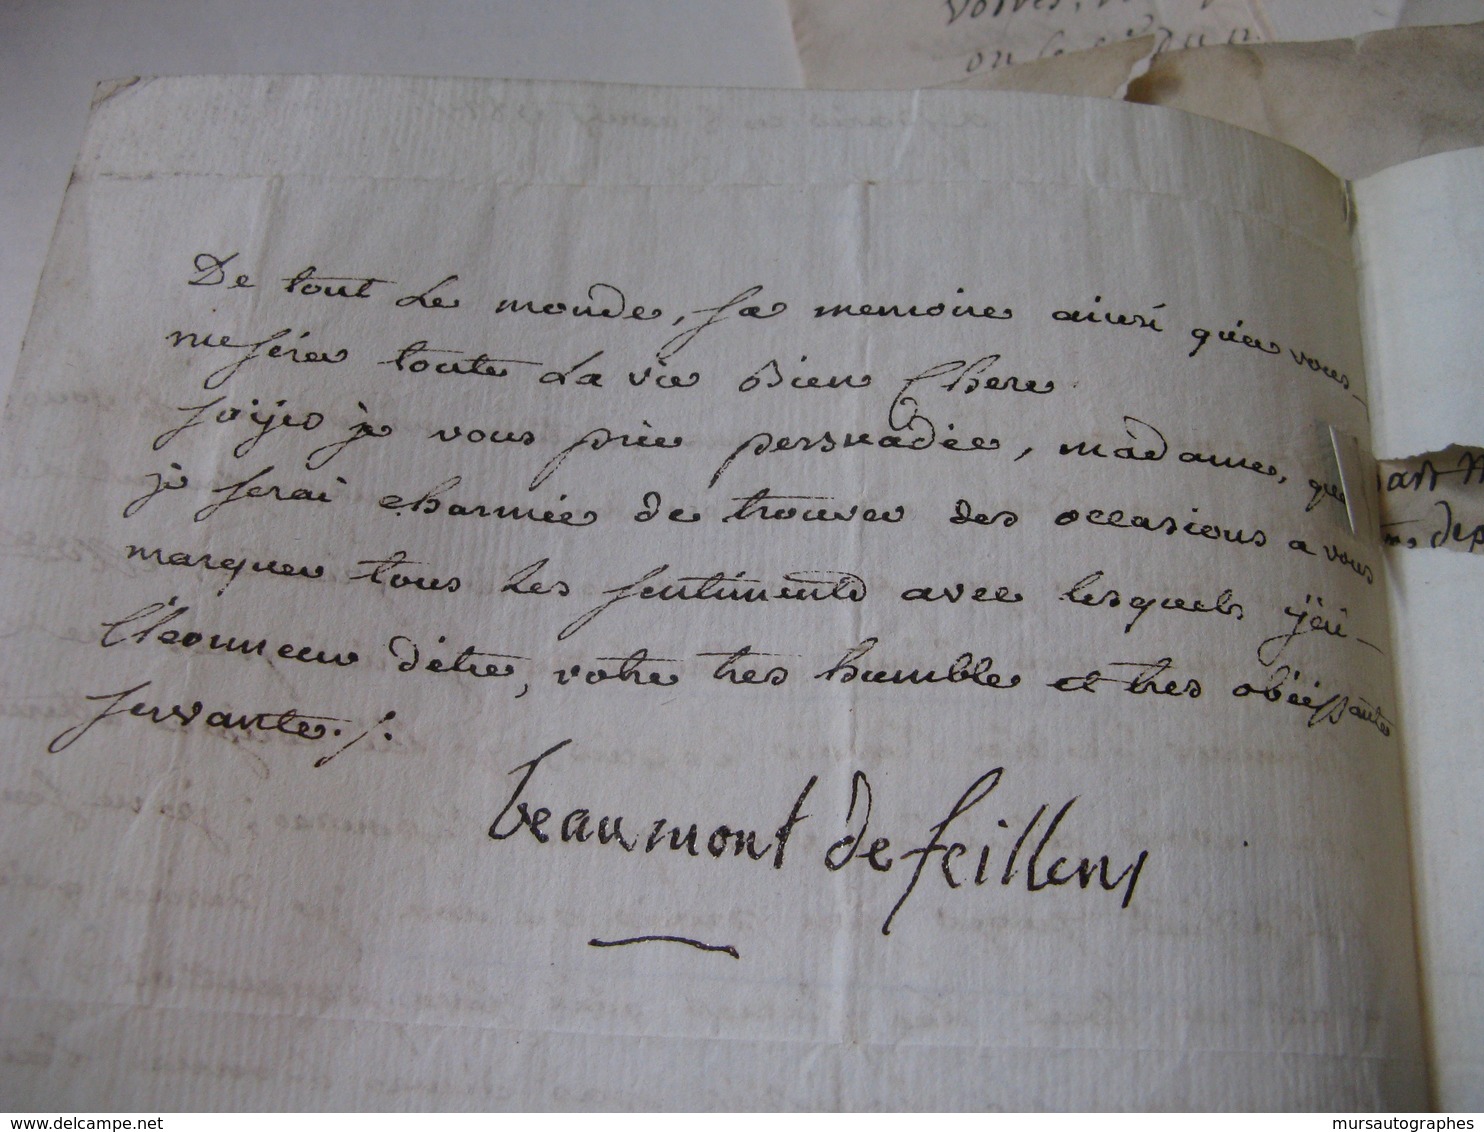 De tout Le monde, sa memoire ainsi que vous
me sera toute La vie Bien Chere
soyes je vous prie persuadée, madame, que
je serai charmée de trouver des occasions a vous
marquer tous Les sentiments avec lesquels j'ai
l'honneur d'être, votre tres humble et tres obéissante
servante./.
beaumont de feillens
delcampe.net
mursautographes